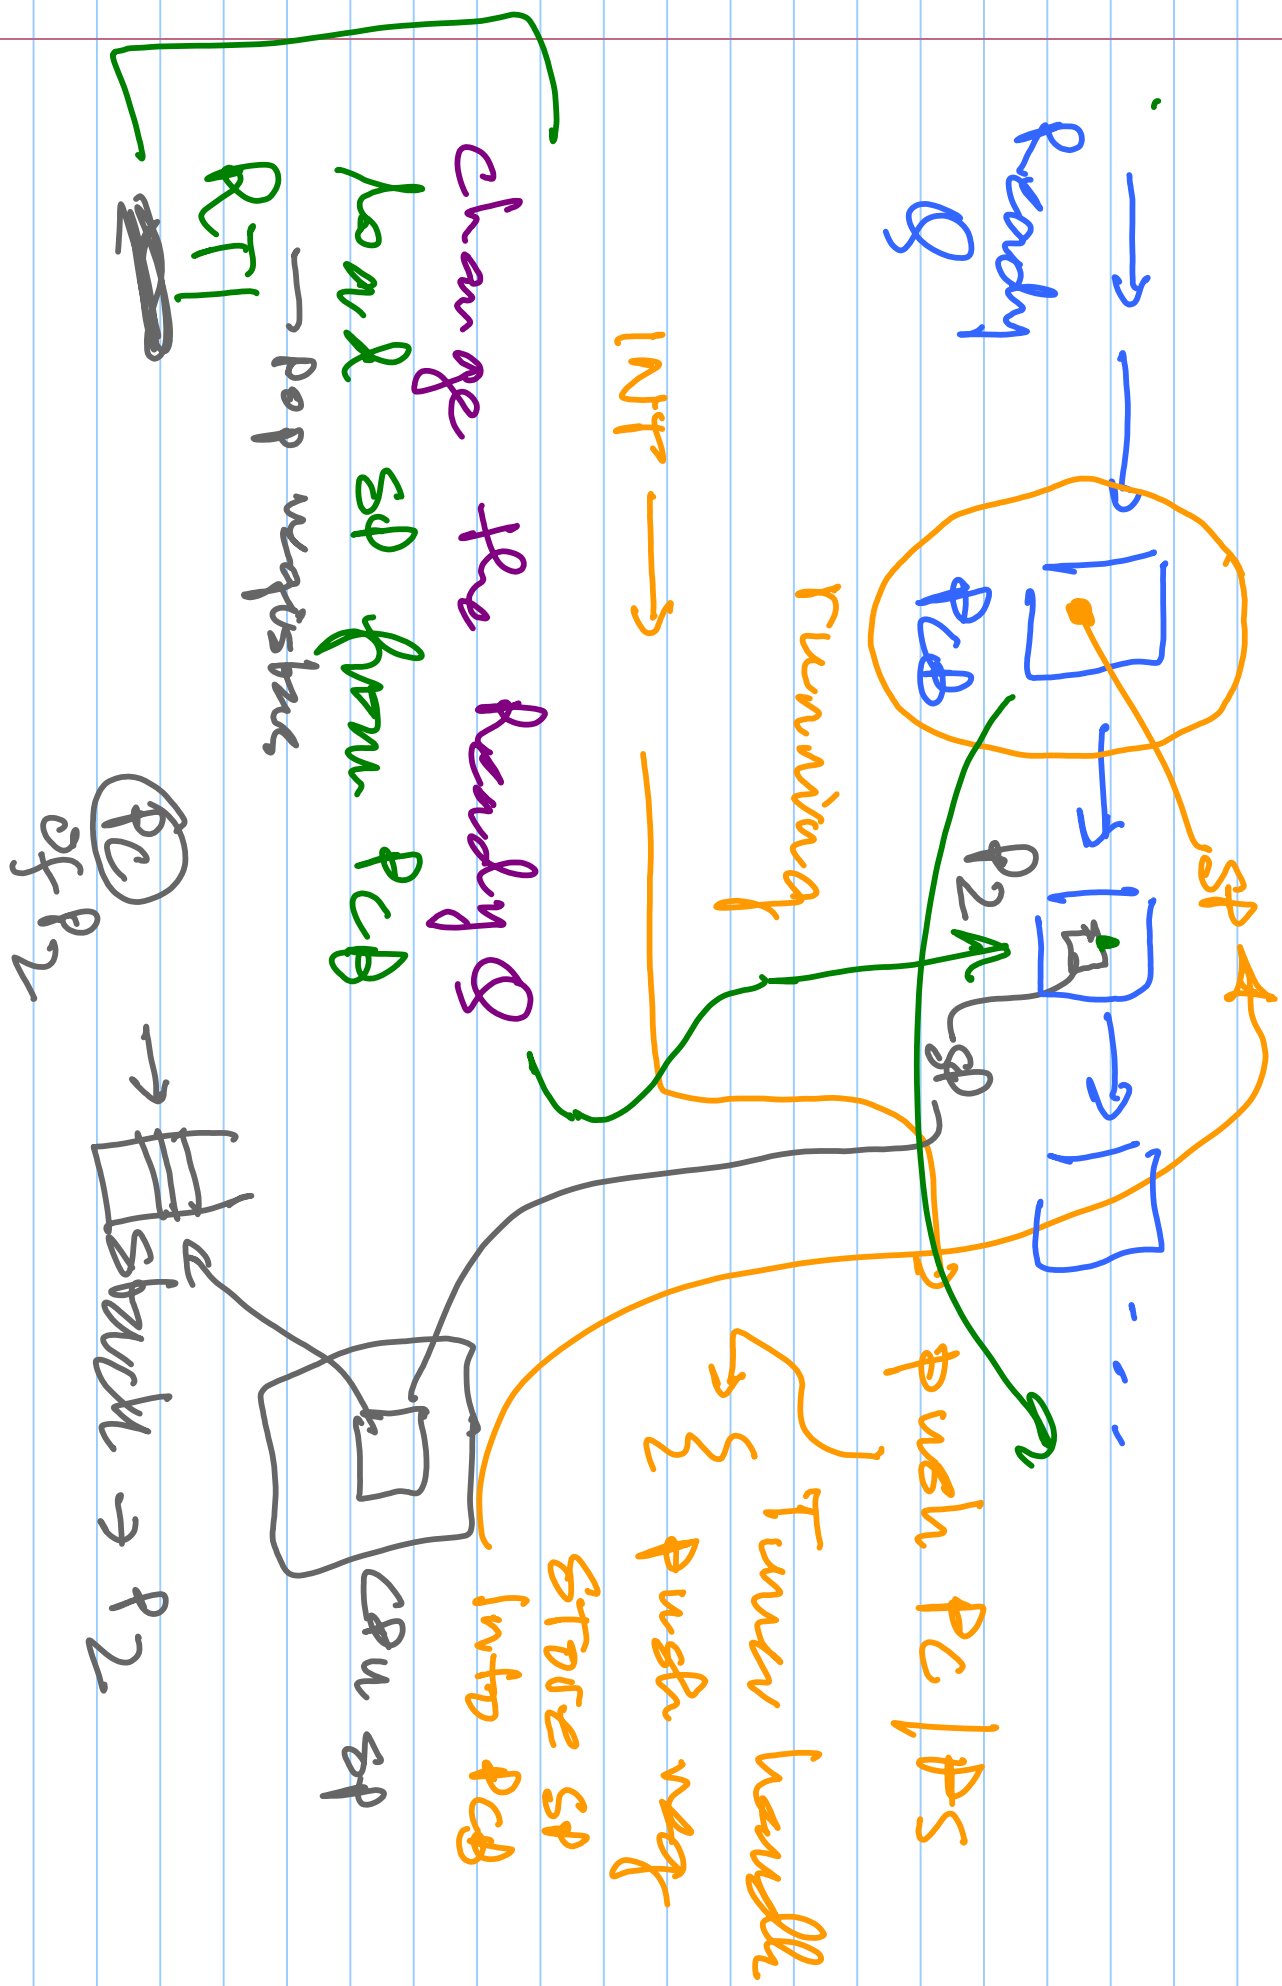 Ready
Q
PCB
SP
P2
SP
running
INT
push PC/PS
Timer handle
push reg
STORE SP
Into PCB
change the Ready Q
load SP from PCB
pop register
RTI
CPU SP
PC
of P2
stack → P2